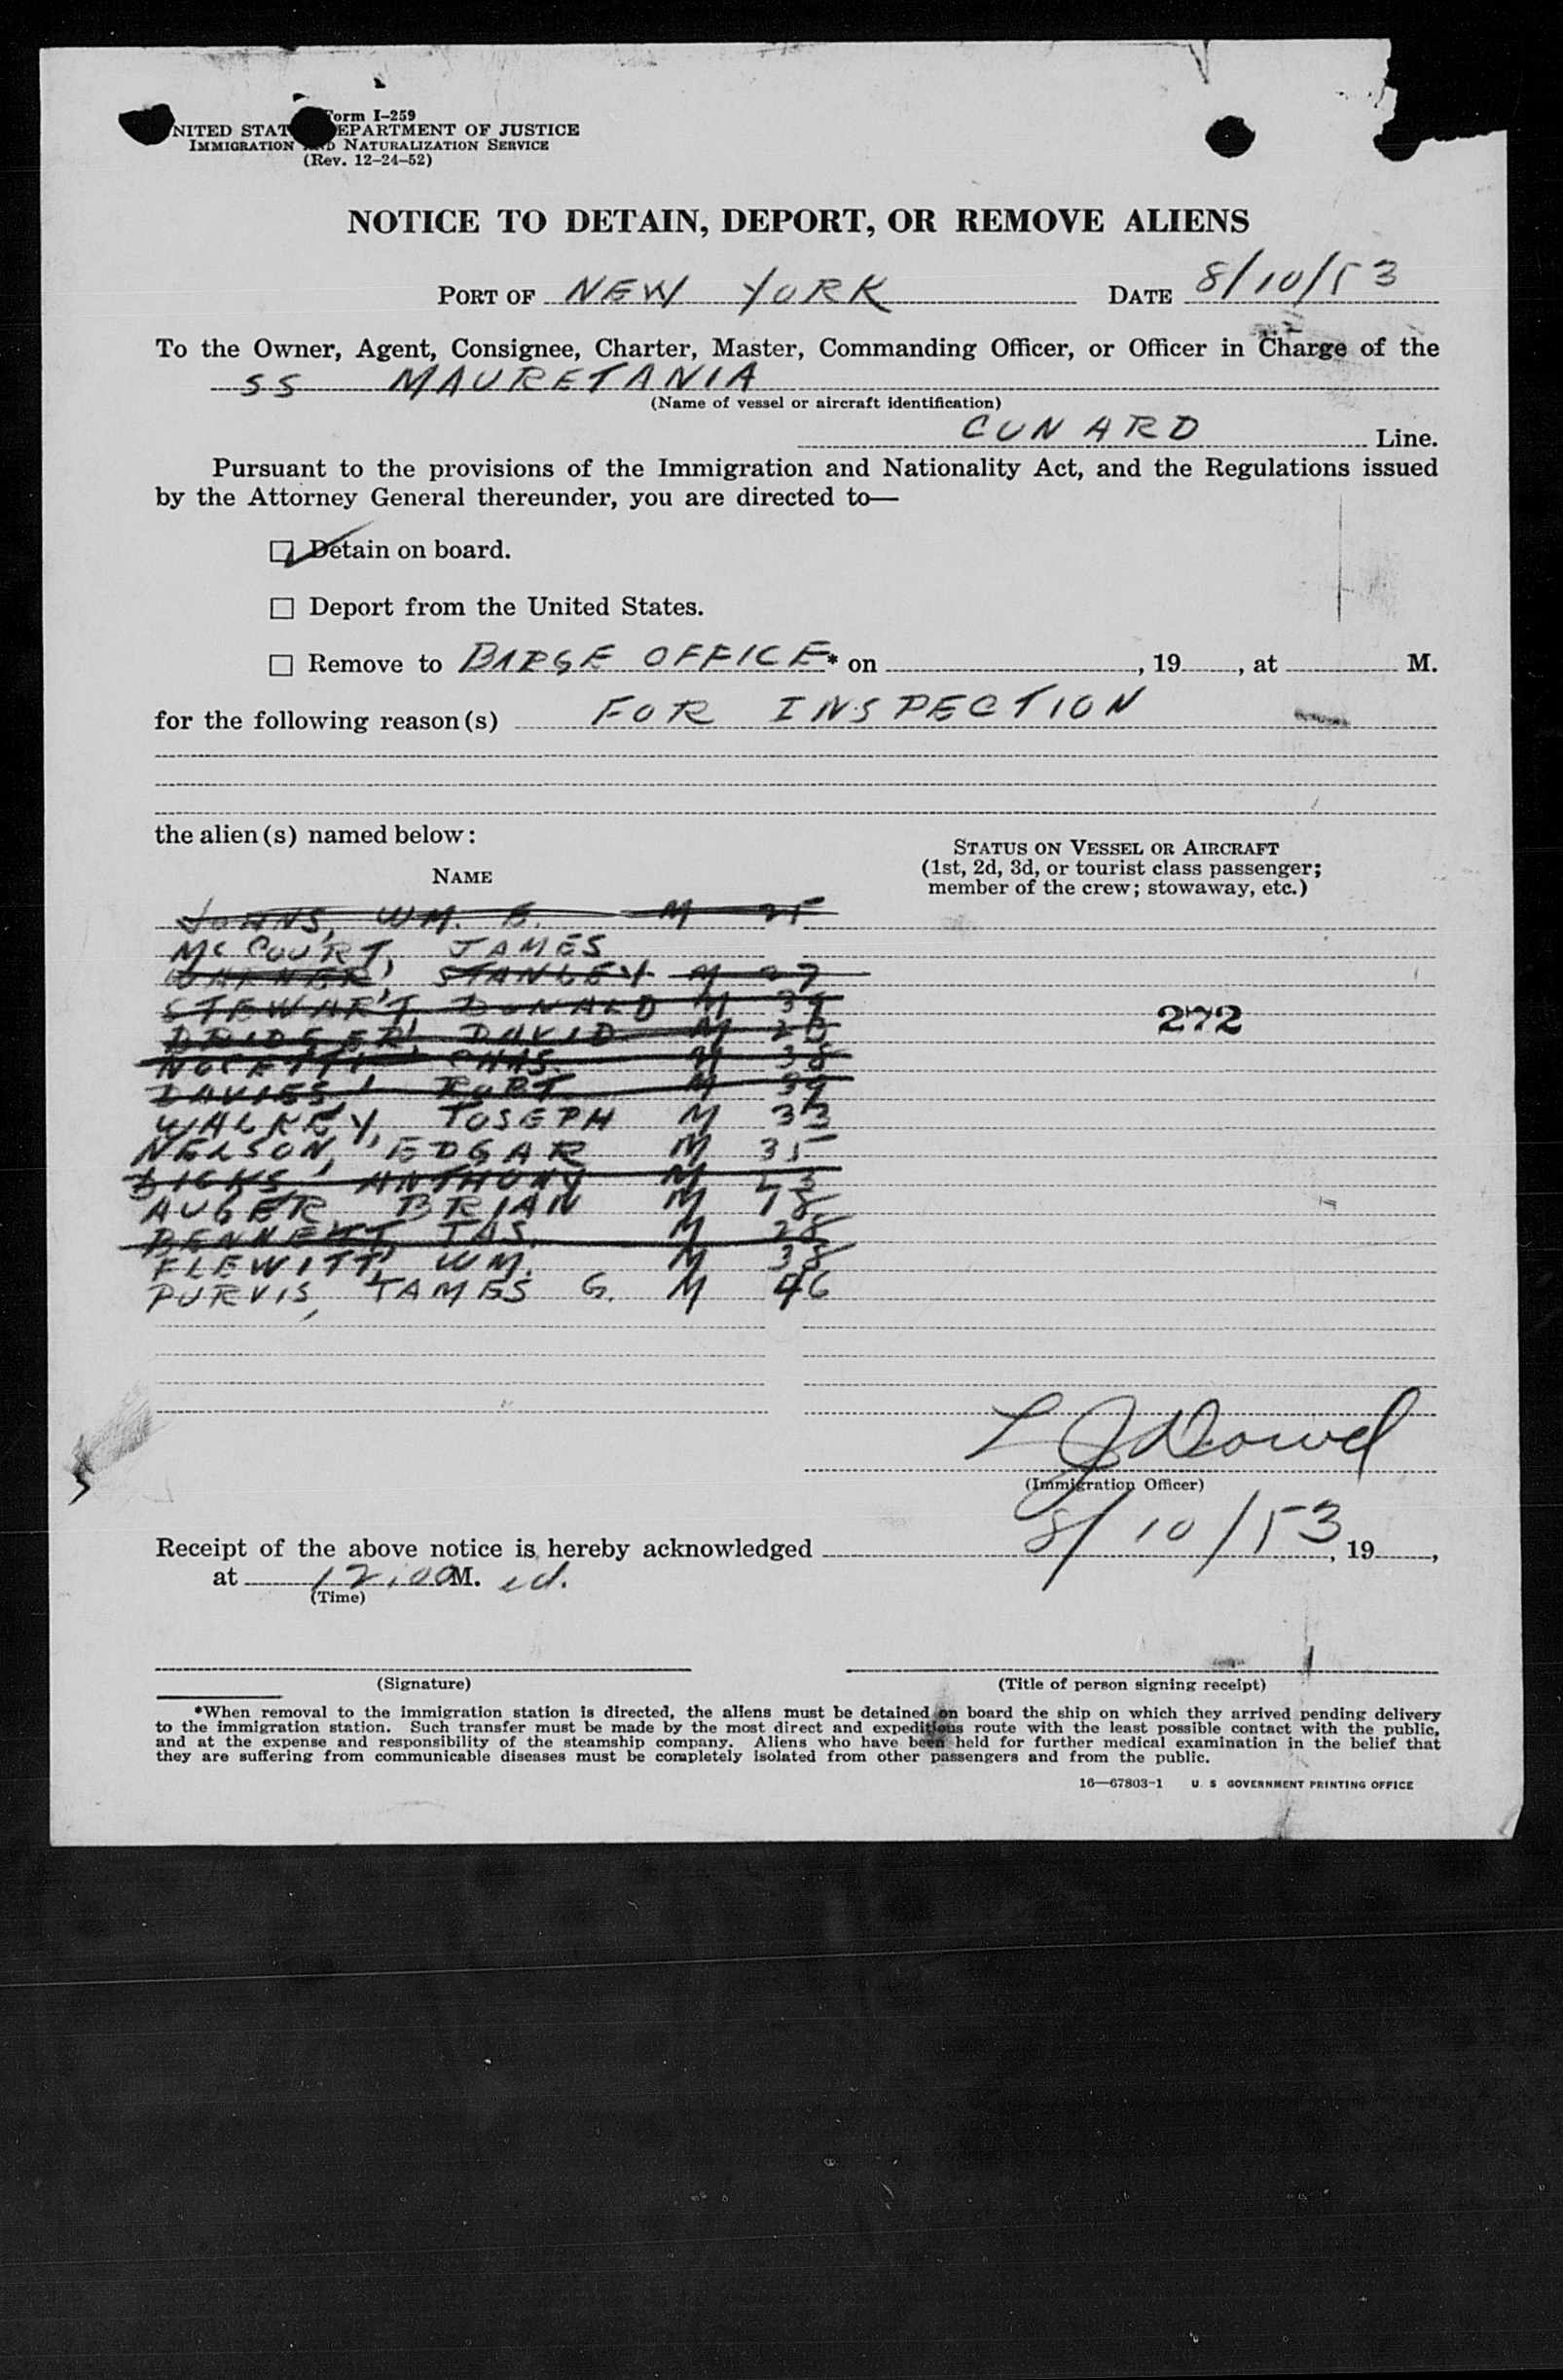 Form I-259
UNITED STATES DEPARTMENT OF JUSTICE
IMMIGRATION AND NATURALIZATION SERVICE
(Rev. 12-24-52)
NOTICE TO DETAIN, DEPORT, OR REMOVE ALIENS
PORT OF NEW YORK DATE 8/10/53
To the Owner, Agent, Consignee, Charter, Master, Commanding Officer, or Officer in Charge of the
SS MAURETANIA
(Name of vessel or aircraft identification)
CUNARD Line.
Pursuant to the provisions of the Immigration and Nationality Act, and the Regulations issued
by the Attorney General thereunder, you are directed to—
Detain on board.
Deport from the United States.
Remove to BARGE OFFICE* on , 19 , at M.
for the following reason(s) FOR INSPECTION
the alien(s) named below:
NAME
STATUS ON VESSEL OR AIRCRAFT
(1st, 2d, 3d, or tourist class passenger;
member of the crew; stowaway, etc.)
JOHNS, WM. E. M 25
McCOURT, JAMES
WARNER, STANLEY M 27
STEWART, DONALD M 39
272
BRIDGER, DAVID M
CHAS. M 38
DAVIES, ROBT. M 39
WALKEY, JOSEPH M 33
NELSON, EDGAR M 35
ANTHONY M
AUGER BRIAN M 18
BENNETT, JAS. M 28
FLEWITT, WM. M 38
PURVIS, JAMES G. M 46
L J Dowd
(Immigration Officer)
Receipt of the above notice is hereby acknowledged 8/10/53, 19 ,
at 12:00 M.
(Time)
(Signature)
(Title of person signing receipt)
*When removal to the immigration station is directed, the aliens must be detained on board the ship on which they arrived pending delivery
to the immigration station. Such transfer must be made by the most direct and expeditious route with the least possible contact with the public,
and at the expense and responsibility of the steamship company. Aliens who have been held for further medical examination in the belief that
they are suffering from communicable diseases must be completely isolated from other passengers and from the public.
16—67803-1 U. S. GOVERNMENT PRINTING OFFICE